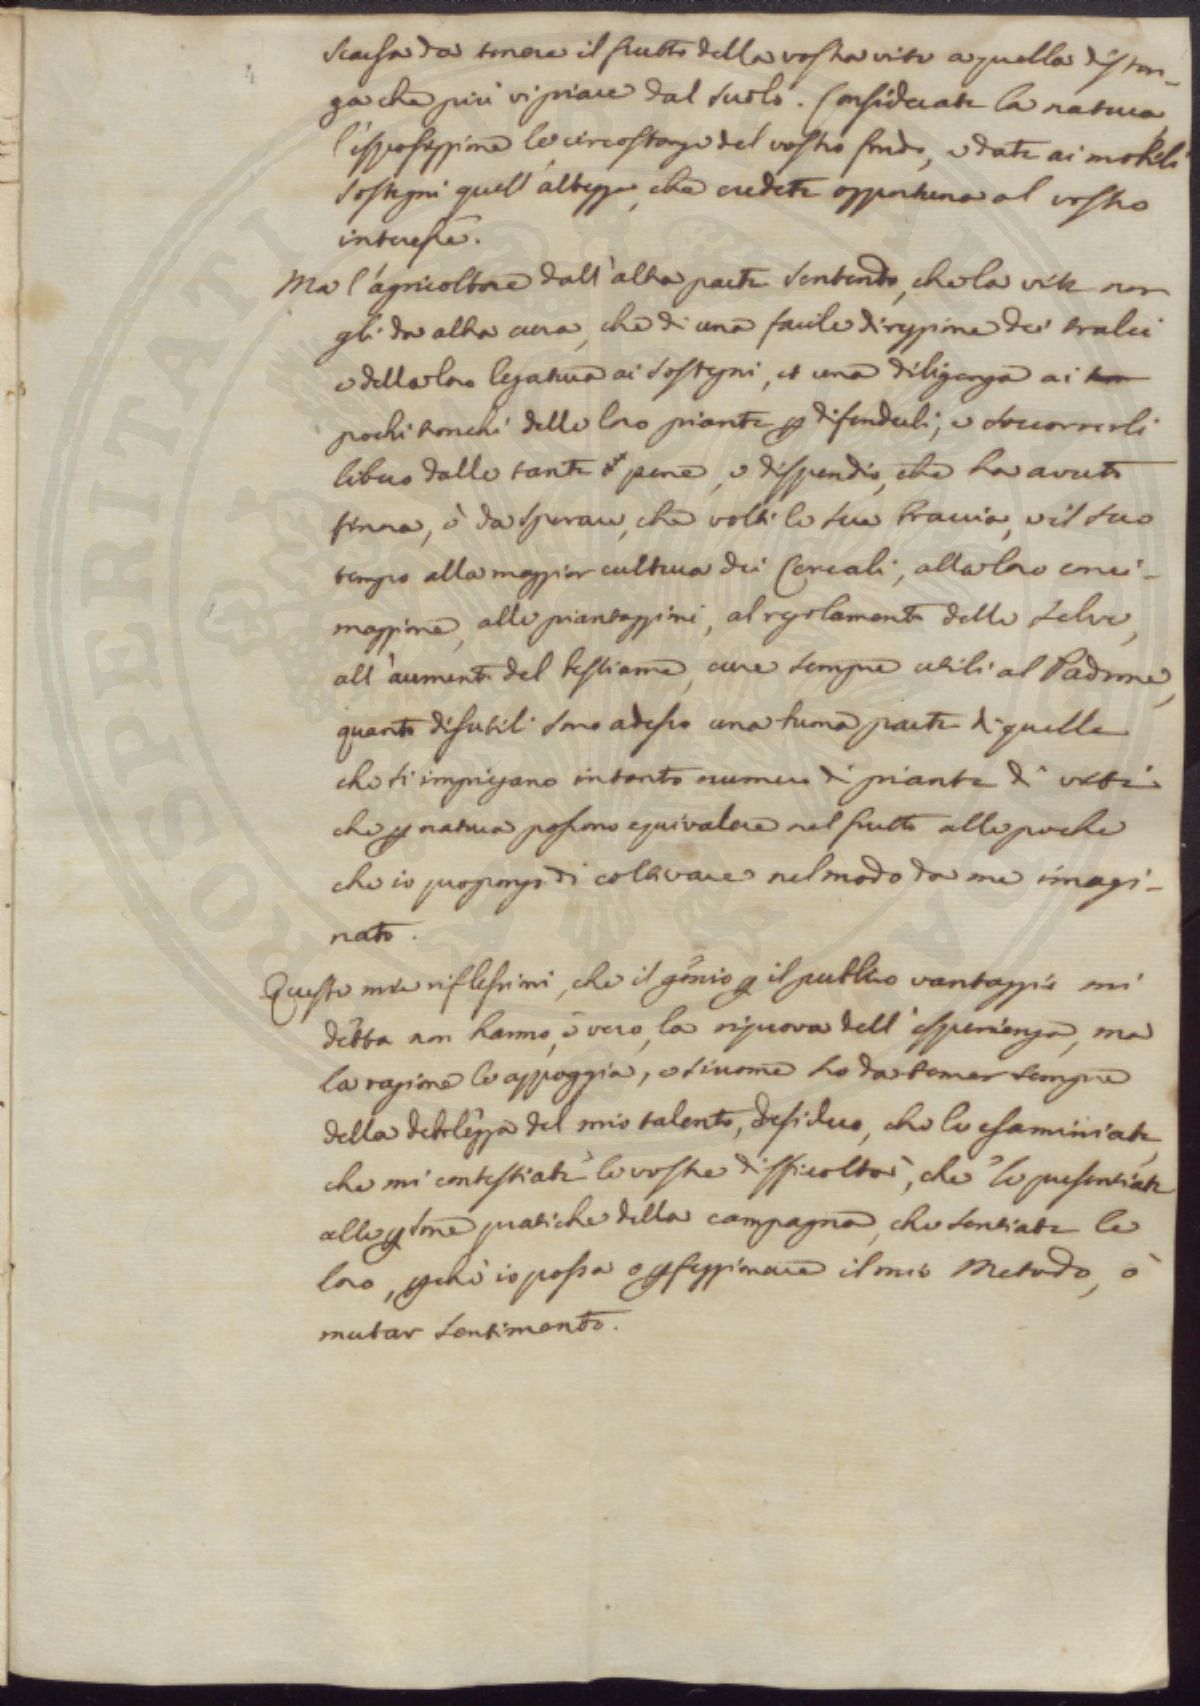 da tenere il frutto della vostra vite a quella distan-
za che più vi piace dal suolo. Considerate la natura
l'esposizzione le circostanze del vostro fondo, e date ai mobili
sostegni quell'altezza, che credete opportuna al vostro
interesse.
Ma l'agricoltore dall'altra parte sentendo, che la vite non
gli da altra cura, che di una facile direzzione dei tralci
e della loro legatura ai sostegni, et una diligenza ai
pochi tronchi delle loro piante p difenderli, e soccorrerli
libero dalle tante pene, e dispendio, che ha avuto
finora, è da sperare, che volti le sue braccia, e il suo
tempo alla maggior cultura dei Cereali, alla loro conci-
mazzione, alle piantazzioni, al regolamento delle selve,
all'aumento del bestiame, cure sempre utili al Padrone,
quanto disutili sono adesso una buona parte di quelle
che si impiegano in tanto numero di piante di viti
che p natura possono equivalere nel frutto alle poche
che io propongo di coltivare nel modo da me imagi-
nato.
Queste mie riflessioni, che il genio p il publico vantaggio mi
detta non hanno, è vero, la riprova dell'esperienza, ma
la ragione le appoggia, e siccome ho da temer sempre
della debolezza del mio talento, desidero, che le esaminiate,
che mi contestiate le vostre difficoltà, che le presentiate
alle psone pratiche della campagna, che sentiate le
loro, pchè io possa o pfezzionare il mio Metodo, ò
mutar sentimento.
PROSPERITATI